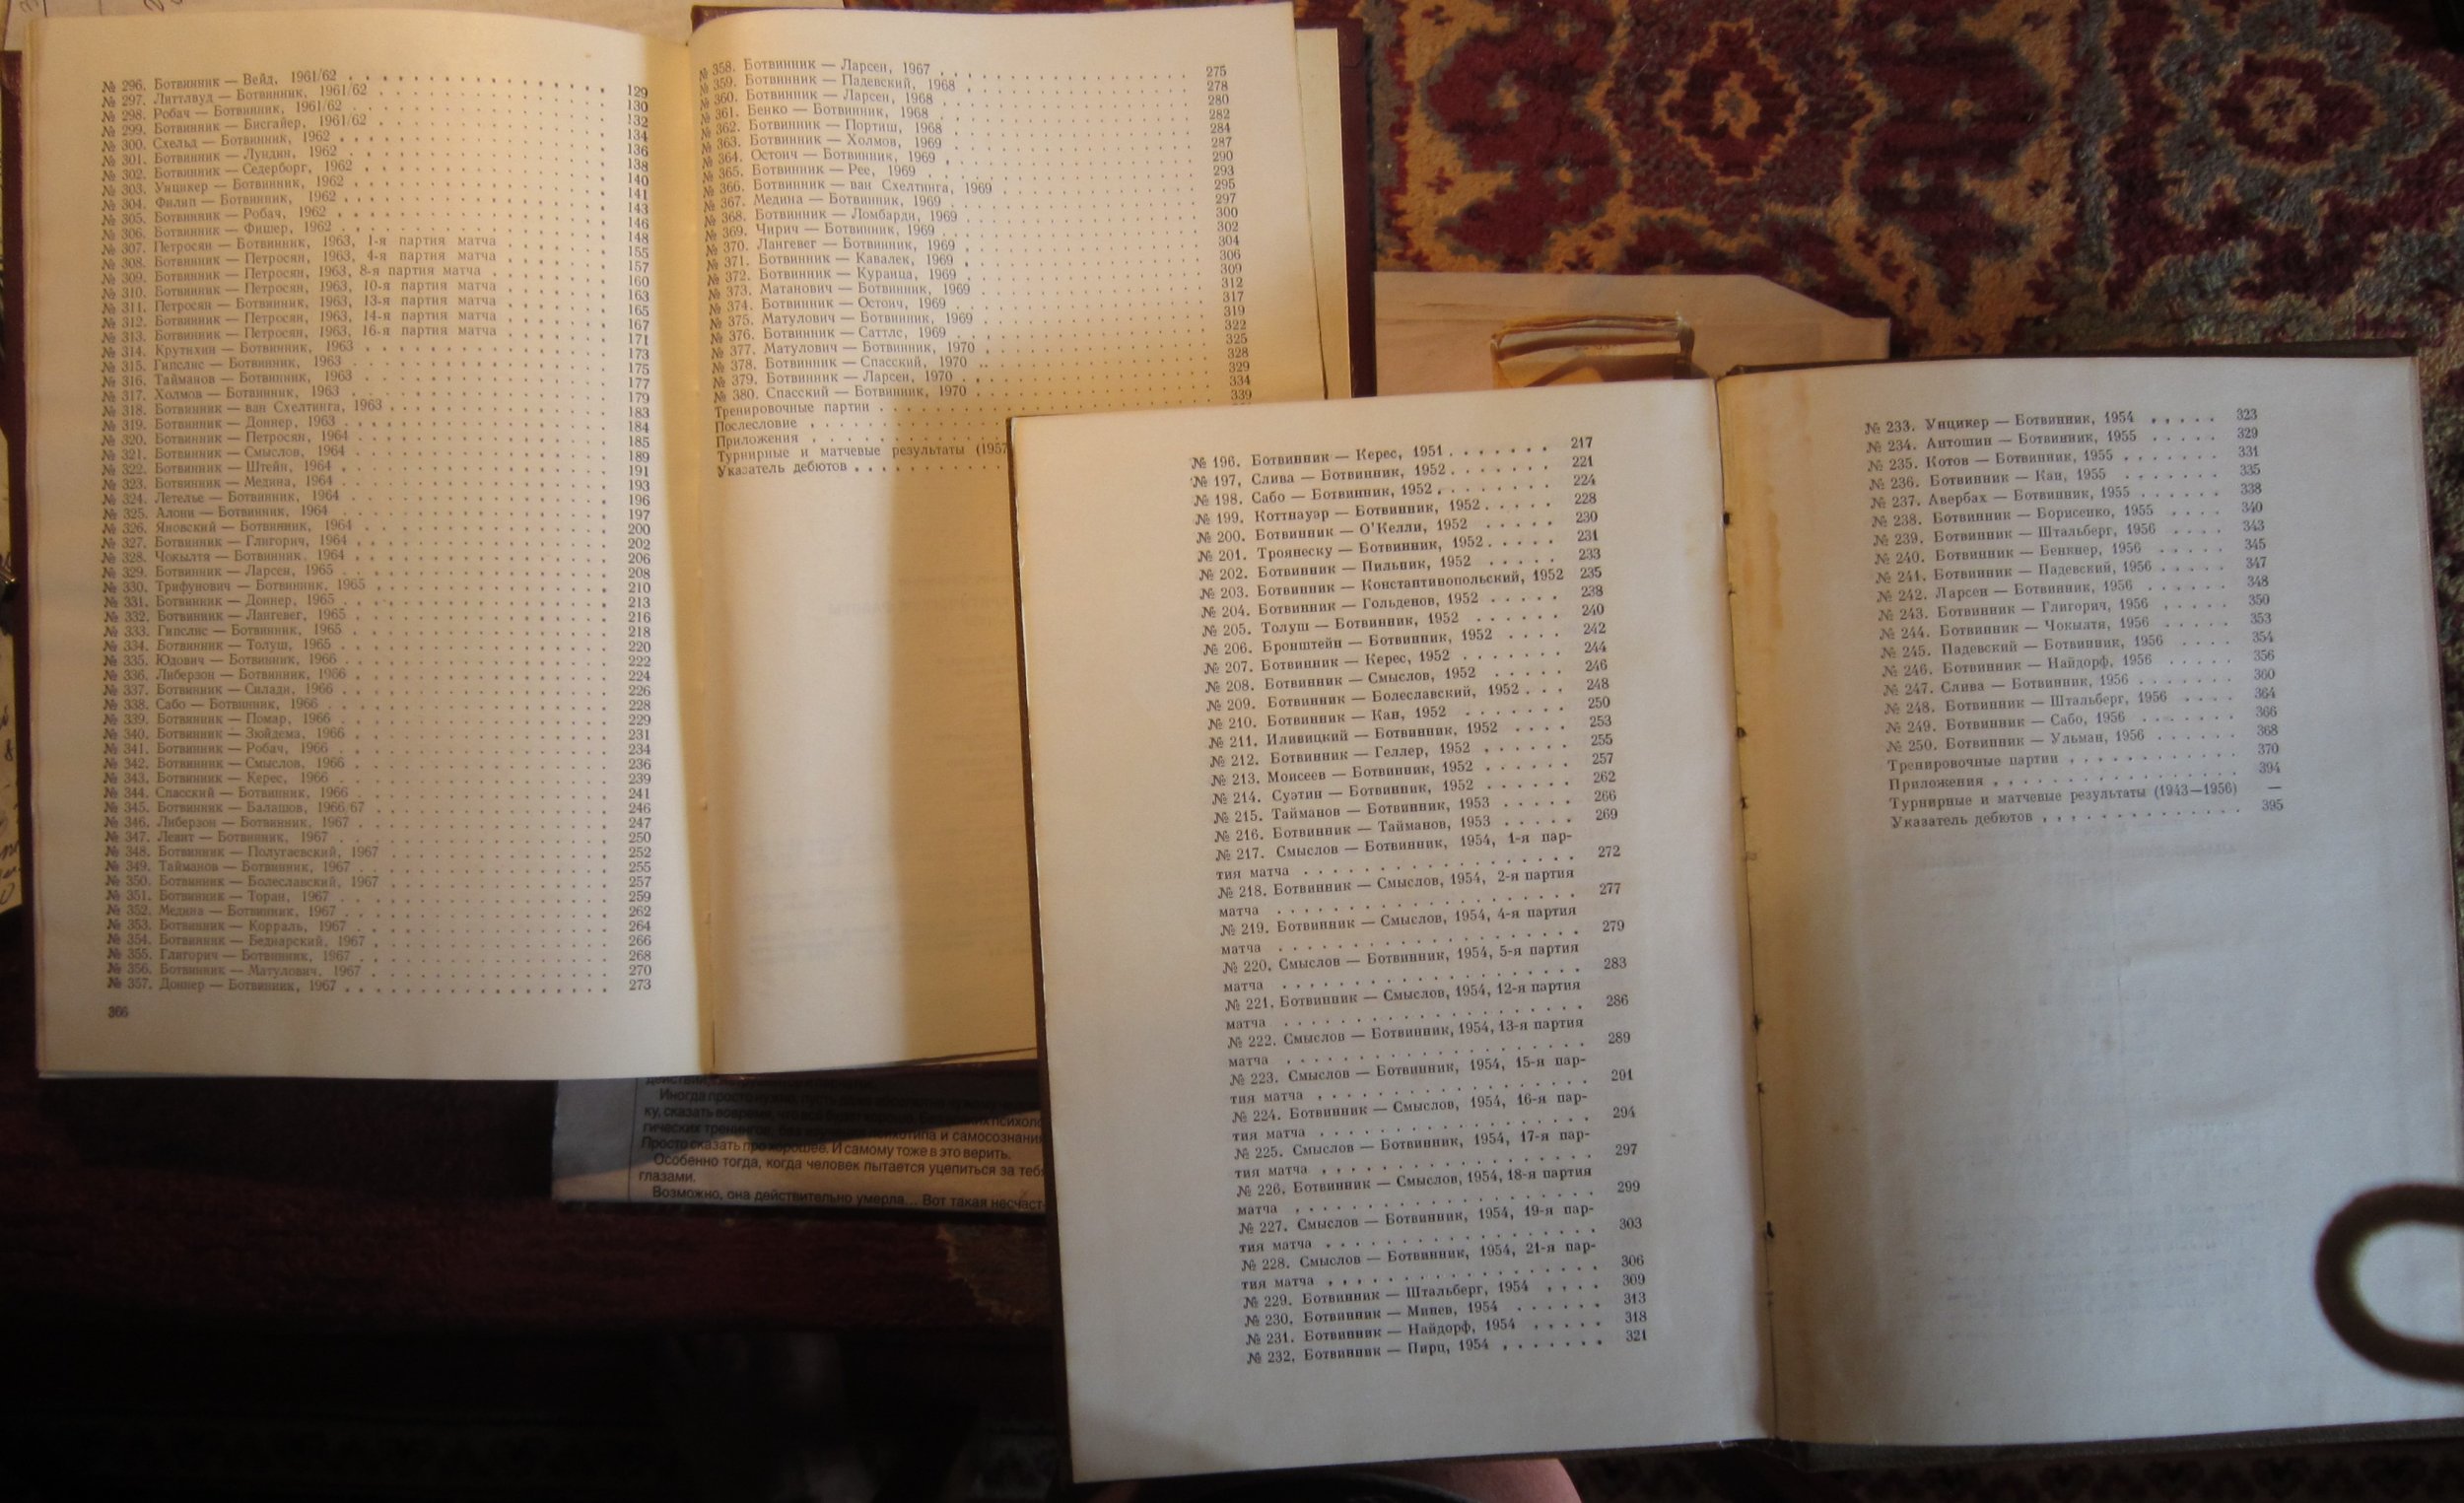 № 296. Ботвинник — Вейд, 1961/62 129
№ 297. Литтлвуд — Ботвинник, 1961/62 130
№ 298. Робач — Ботвинник, 1961/62 132
№ 299. Ботвинник — Бисгайер, 1961/62 134
№ 300. Схельд — Ботвинник, 1962 136
№ 301. Ботвинник — Лундин, 1962 138
№ 302. Ботвинник — Седерборг, 1962 140
№ 303. Унцикер — Ботвинник, 1962 141
№ 304. Филип — Ботвинник, 1962 143
№ 305. Ботвинник — Робач, 1962 146
№ 306. Ботвинник — Фишер, 1962 148
№ 307. Петросян — Ботвинник, 1963, 1-я партия матча 155
№ 308. Ботвинник — Петросян, 1963, 4-я партия матча 157
№ 309. Ботвинник — Петросян, 1963, 8-я партия матча 160
№ 310. Ботвинник — Петросян, 1963, 10-я партия матча 163
№ 311. Петросян — Ботвинник, 1963, 13-я партия матча 165
№ 312. Ботвинник — Петросян, 1963, 14-я партия матча 167
№ 313. Ботвинник — Петросян, 1963, 16-я партия матча 171
№ 314. Крутихин — Ботвинник, 1963 173
№ 315. Гипслис — Ботвинник, 1963 175
№ 316. Тайманов — Ботвинник, 1963 177
№ 317. Холмов — Ботвинник, 1963 179
№ 318. Ботвинник — ван Схелтинга, 1963 183
№ 319. Ботвинник — Доннер, 1963 184
№ 320. Ботвинник — Петросян, 1964 185
№ 321. Ботвинник — Смыслов, 1964 189
№ 322. Ботвинник — Штейн, 1964 191
№ 323. Ботвинник — Медина, 1964 193
№ 324. Летелье — Ботвинник, 1964 196
№ 325. Алони — Ботвинник, 1964 197
№ 326. Яновский — Ботвинник, 1964 200
№ 327. Ботвинник — Глигорич, 1964 202
№ 328. Чокылтя — Ботвинник, 1964 206
№ 329. Ботвинник — Ларсен, 1965 208
№ 330. Трифунович — Ботвинник, 1965 210
№ 331. Ботвинник — Доннер, 1965 213
№ 332. Ботвинник — Лангевег, 1965 216
№ 333. Гипслис — Ботвинник, 1965 218
№ 334. Ботвинник — Толуш, 1965 220
№ 335. Юдович — Ботвинник, 1966 222
№ 336. Либерзон — Ботвинник, 1966 224
№ 337. Ботвинник — Силади, 1966 226
№ 338. Сабо — Ботвинник, 1966 228
№ 339. Ботвинник — Помар, 1966 229
№ 340. Ботвинник — Зюйдема, 1966 231
№ 341. Ботвинник — Робач, 1966 234
№ 342. Ботвинник — Смыслов, 1966 236
№ 343. Ботвинник — Керес, 1966 239
№ 344. Спасский — Ботвинник, 1966 241
№ 345. Ботвинник — Балашов, 1966/67 246
№ 346. Либерзон — Ботвинник, 1967 247
№ 347. Левит — Ботвинник, 1967 250
№ 348. Ботвинник — Полугаевский, 1967 252
№ 349. Тайманов — Ботвинник, 1967 255
№ 350. Ботвинник — Болеславский, 1967 257
№ 351. Ботвинник — Торан, 1967 259
№ 352. Медина — Ботвинник, 1967 262
№ 353. Ботвинник — Корраль, 1967 264
№ 354. Ботвинник — Беднарский, 1967 266
№ 355. Глигорич — Ботвинник, 1967 268
№ 356. Ботвинник — Матулович, 1967 270
№ 357. Доннер — Ботвинник, 1967 273
366
№ 358. Ботвинник — Ларсен, 1967 275
№ 359. Ботвинник — Падевский, 1968 278
№ 360. Ботвинник — Ларсен, 1968 280
№ 361. Бенко — Ботвинник, 1968 282
№ 362. Ботвинник — Портиш, 1968 284
№ 363. Ботвинник — Холмов, 1969 287
№ 364. Остоич — Ботвинник, 1969 290
№ 365. Ботвинник — Рее, 1969 293
№ 366. Ботвинник — ван Схелтинга, 1969 295
№ 367. Медина — Ботвинник, 1969 297
№ 368. Ботвинник — Ломбарди, 1969 300
№ 369. Чирич — Ботвинник, 1969 302
№ 370. Лангевег — Ботвинник, 1969 304
№ 371. Ботвинник — Кавалек, 1969 306
№ 372. Ботвинник — Кураица, 1969 309
№ 373. Матанович — Ботвинник, 1969 312
№ 374. Ботвинник — Остоич, 1969 317
№ 375. Матулович — Ботвинник, 1969 319
№ 376. Ботвинник — Саттлс, 1969 322
№ 377. Матулович — Ботвинник, 1970 325
№ 378. Ботвинник — Спасский, 1970 328
№ 379. Ботвинник — Ларсен, 1970 329
№ 380. Спасский — Ботвинник, 1970 334
Тренировочные партии 339
Послесловие
Приложения
Турнирные и матчевые результаты (1957
Указатель дебютов
№ 196. Ботвинник — Керес, 1951 217
№ 197. Слива — Ботвинник, 1952 221
№ 198. Сабо — Ботвинник, 1952 224
№ 199. Коттнауэр — Ботвинник, 1952 228
№ 200. Ботвинник — О'Келли, 1952 230
№ 201. Троянеску — Ботвинник, 1952 231
№ 202. Ботвинник — Пильник, 1952 233
№ 203. Ботвинник — Константинопольский, 1952 235
№ 204. Ботвинник — Гольденов, 1952 238
№ 205. Толуш — Ботвинник, 1952 240
№ 206. Бронштейн — Ботвинник, 1952 242
№ 207. Ботвинник — Керес, 1952 244
№ 208. Ботвинник — Смыслов, 1952 246
№ 209. Ботвинник — Болеславский, 1952 248
№ 210. Ботвинник — Кан, 1952 250
№ 211. Иливицкий — Ботвинник, 1952 253
№ 212. Ботвинник — Геллер, 1952 255
№ 213. Моисеев — Ботвинник, 1952 257
№ 214. Суэтин — Ботвинник, 1952 262
№ 215. Тайманов — Ботвинник, 1953 266
№ 216. Ботвинник — Тайманов, 1953 269
№ 217. Смыслов — Ботвинник, 1954, 1-я пар-
тия матча 272
№ 218. Ботвинник — Смыслов, 1954, 2-я партия
матча 277
№ 219. Ботвинник — Смыслов, 1954, 4-я партия
матча 279
№ 220. Смыслов — Ботвинник, 1954, 5-я партия
матча 283
№ 221. Ботвинник — Смыслов, 1954, 12-я партия
матча 286
№ 222. Смыслов — Ботвинник, 1954, 13-я партия
матча 289
№ 223. Смыслов — Ботвинник, 1954, 15-я пар-
тия матча 291
№ 224. Ботвинник — Смыслов, 1954, 16-я пар-
тия матча 294
№ 225. Смыслов — Ботвинник, 1954, 17-я пар-
тия матча 297
№ 226. Ботвинник — Смыслов, 1954, 18-я партия
матча 299
№ 227. Смыслов — Ботвинник, 1954, 19-я пар-
тия матча 303
№ 228. Смыслов — Ботвинник, 1954, 21-я пар-
тия матча 306
№ 229. Ботвинник — Штальберг, 1954 309
№ 230. Ботвинник — Минев, 1954 313
№ 231. Ботвинник — Найдорф, 1954 318
№ 232. Ботвинник — Пирц, 1954 321
№ 233. Унцикер — Ботвинник, 1954 323
№ 234. Антошин — Ботвинник, 1955 329
№ 235. Котов — Ботвинник, 1955 331
№ 236. Ботвинник — Кан, 1955 335
№ 237. Авербах — Ботвинник, 1955 338
№ 238. Ботвинник — Борисенко, 1955 340
№ 239. Ботвинник — Штальберг, 1956 343
№ 240. Ботвинник — Бенкнер, 1956 345
№ 241. Ботвинник — Падевский, 1956 347
№ 242. Ларсен — Ботвинник, 1956 348
№ 243. Ботвинник — Глигорич, 1956 350
№ 244. Ботвинник — Чокылтя, 1956 353
№ 245. Падевский — Ботвинник, 1956 354
№ 246. Ботвинник — Найдорф, 1956 356
№ 247. Слива — Ботвинник, 1956 360
№ 248. Ботвинник — Штальберг, 1956 364
№ 249. Ботвинник — Сабо, 1956 366
№ 250. Ботвинник — Ульман, 1956 368
Тренировочные партии 370
Приложения 394
Турнирные и матчевые результаты (1943—1956) —
Указатель дебютов 395
Иногда просто нужно
ку, сказать вовремя
гических тренингов и самосознания
Просто сказать про хорошее. И самому тоже в это верить.
Особенно тогда, когда человек пытается уцепиться за теб
глазами.
Возможно, она действительно умерла... Вот такая несчаст